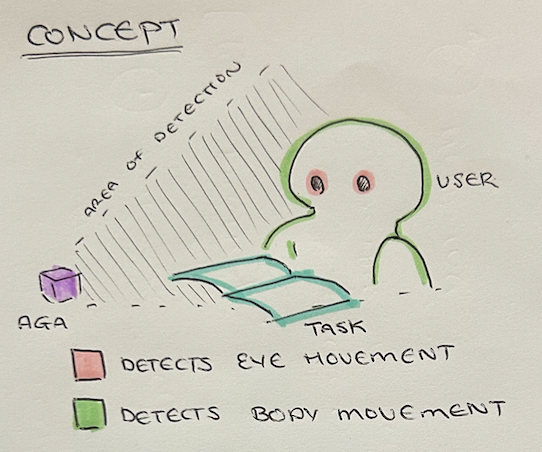 CONCEPT
AREA OF DETECTION
USER
AGA
TASK
DETECTS EYE MOVEMENT
DETECTS BODY MOVEMENT